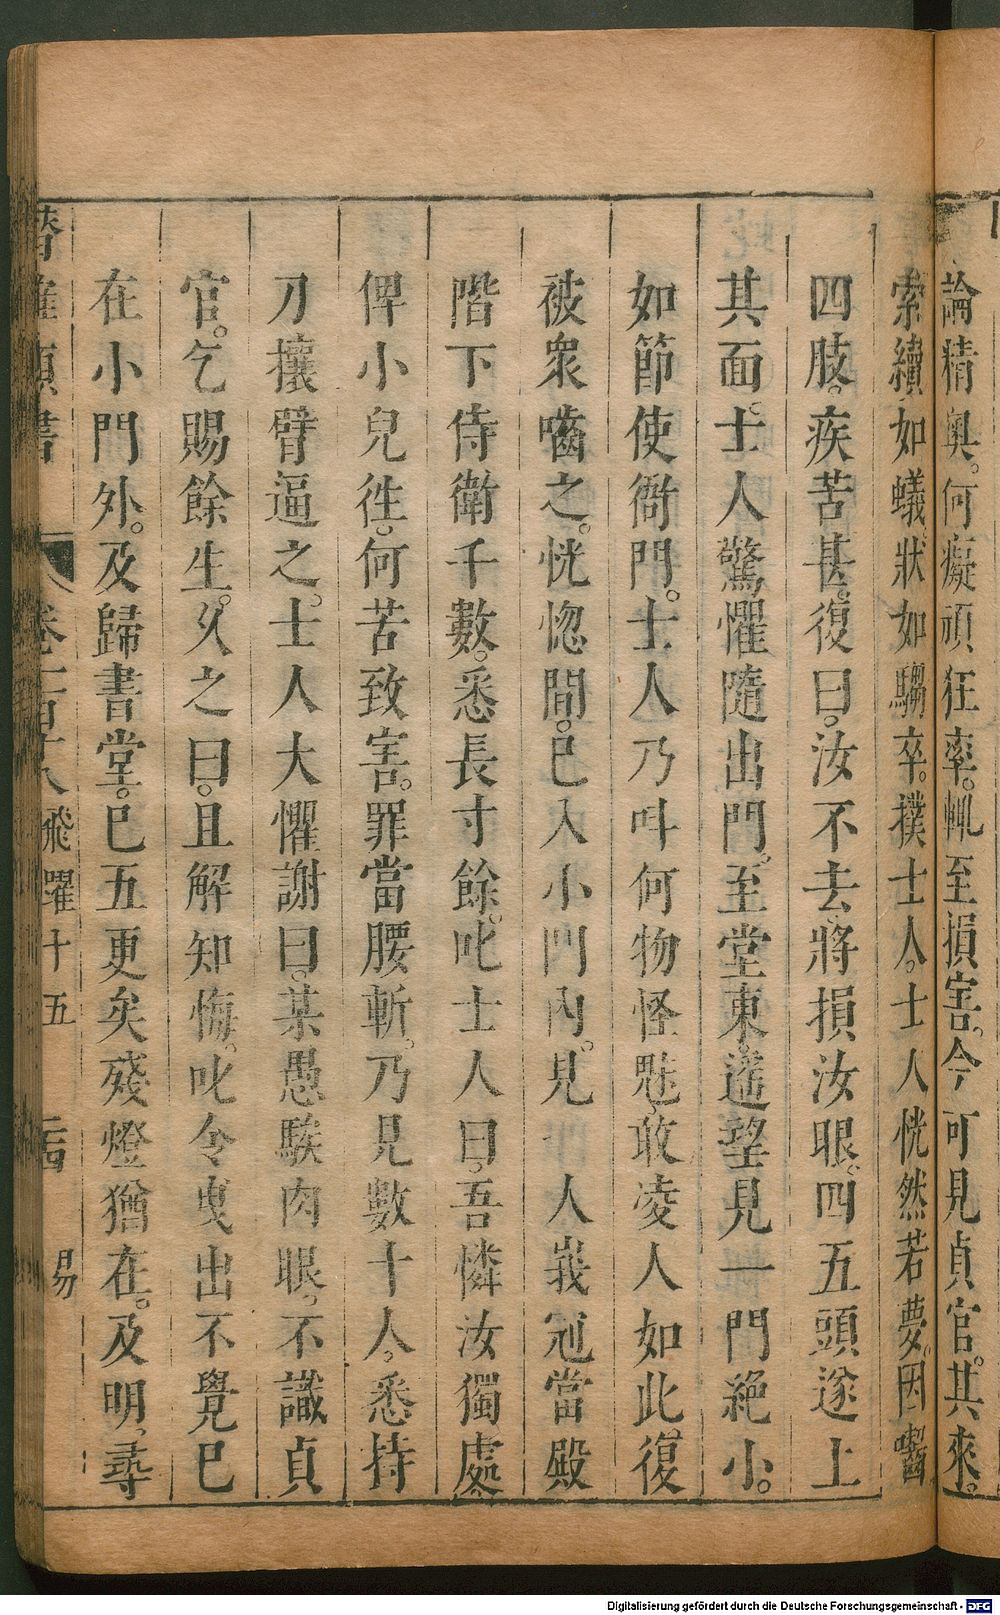 論精奥。何癡頑狂率。輒至損害。今可見貞官。其來。
索續如蟻。狀如騶卒。撲士人。士人恍然若夢。因嚙
四肢。疾苦甚。復曰。汝不去將損汝眼。四五頭遂上
其面。士人驚懼隨出門。至堂東。遥望見一門絶小。
如節使衙門。士人乃呌何物怪魅。敢凌人如此。復
被衆嚙之。恍惚間。已入小門內。見一人峩冠當殿
階下侍衛千數。悉長寸餘。叱士人曰。吾憐汝獨處。
俾小兒徃。何苦致害。罪當腰斬。乃見數十人。悉持
刀攘臂逼之。士人大懼謝曰。某愚騃肉眼。不識貞
官。乞賜餘生。久之曰。且解知悔。叱令曳出不覺已
在小門外。及歸書堂。已五更矣殘燈猶在。及明。尋
卷一百十八 飛躍十五 易
Digitalisierung gefördert durch die Deutsche Forschungsgemeinschaft - DFG